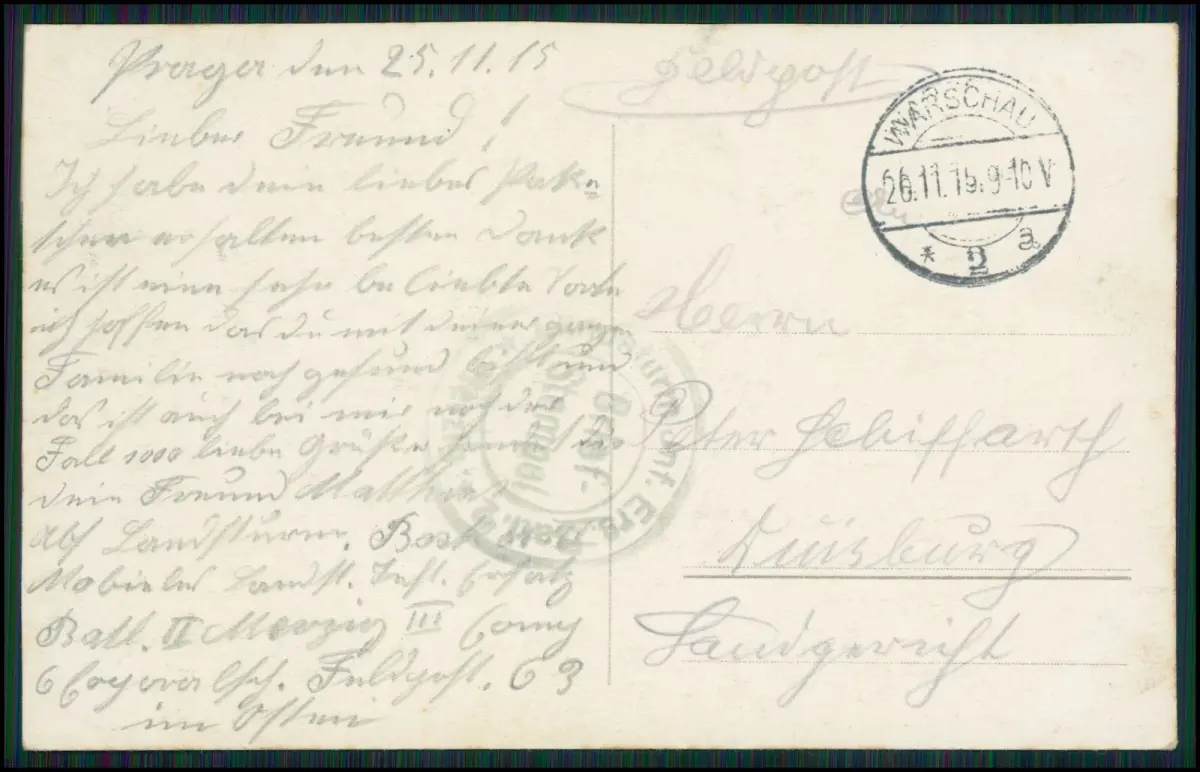 Praga den 25.11.15
Lieber Freund!
Ich habe dein liebes Päke-
schen erhalten besten Dank
es ist eine sehr beliebte Sorte
ich hoffen das du mit deiner ganze
Familie noch gesund bist und
das ist auch bei mir noch der
Fall 1000 liebe Grüße sendet dir
dein Freund Matthias
Abs Landsturm.
Mobieles Landst. Inft. Ersatz
Batl. II Merzig III Comp
6 Corporalsch. Feldpost. 63
im Osten
Feldpost
WARSCHAU
26.11.15.9-10V
* 2 a
Herrn
Peter Schiffarth
Duisburg
Landgericht
Landsturm Inf. Ers. Batl. 2
Briefstempel